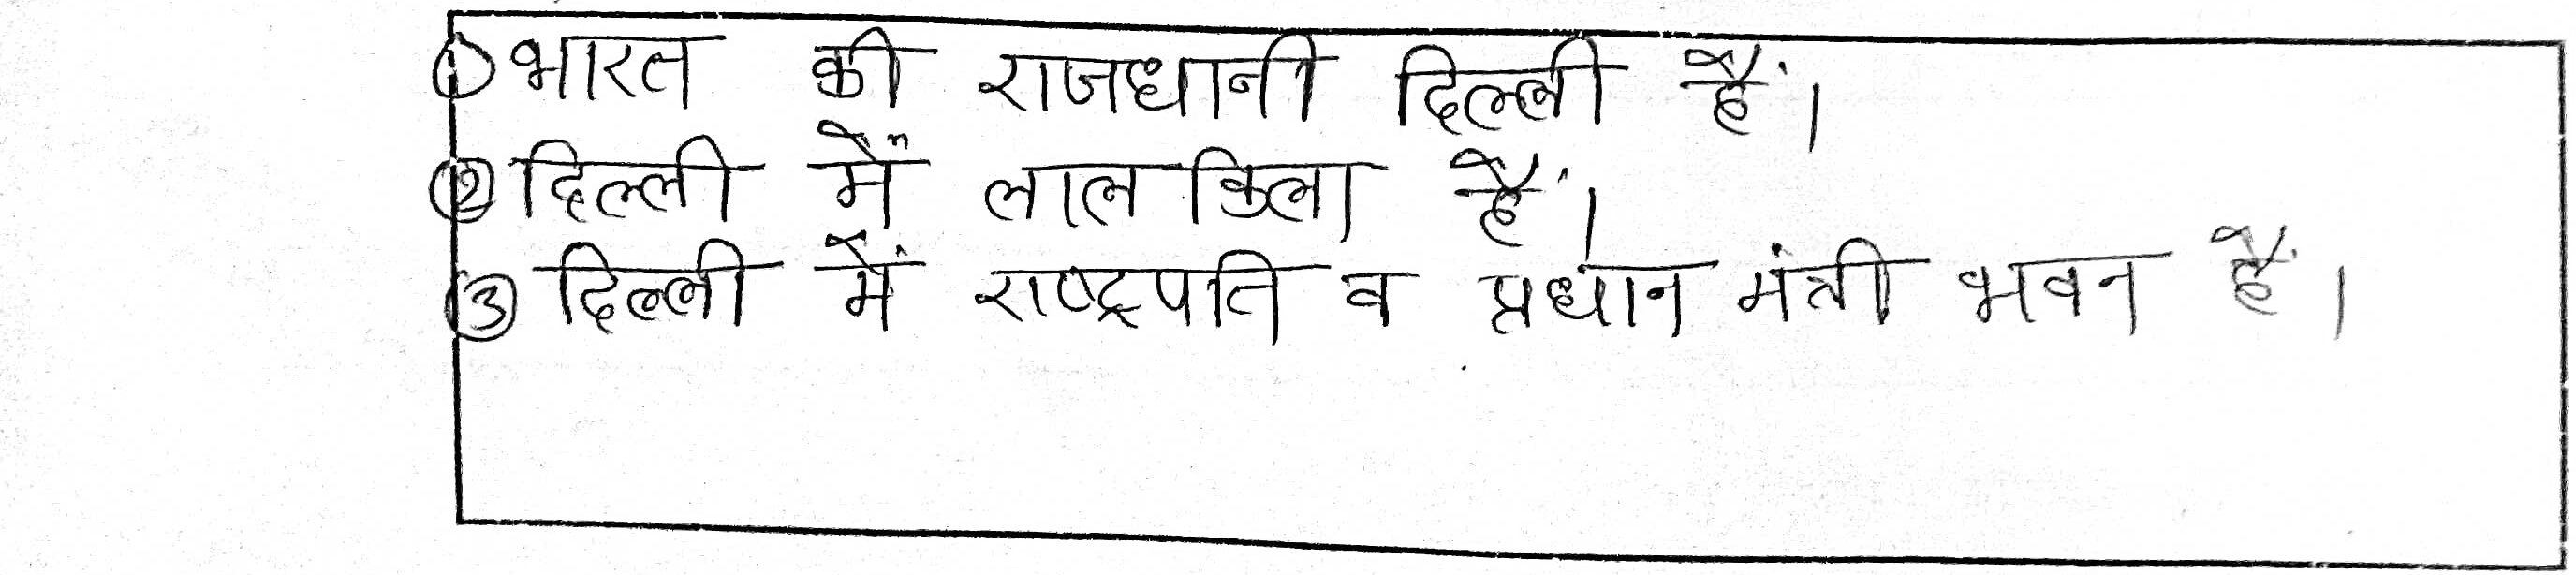 ① भारत की राजधानी दिल्ली हैं।
② दिल्ली में लाल किला हैं।
③ दिल्ली में राष्ट्रपति व प्रधान मंत्री भवन हैं।